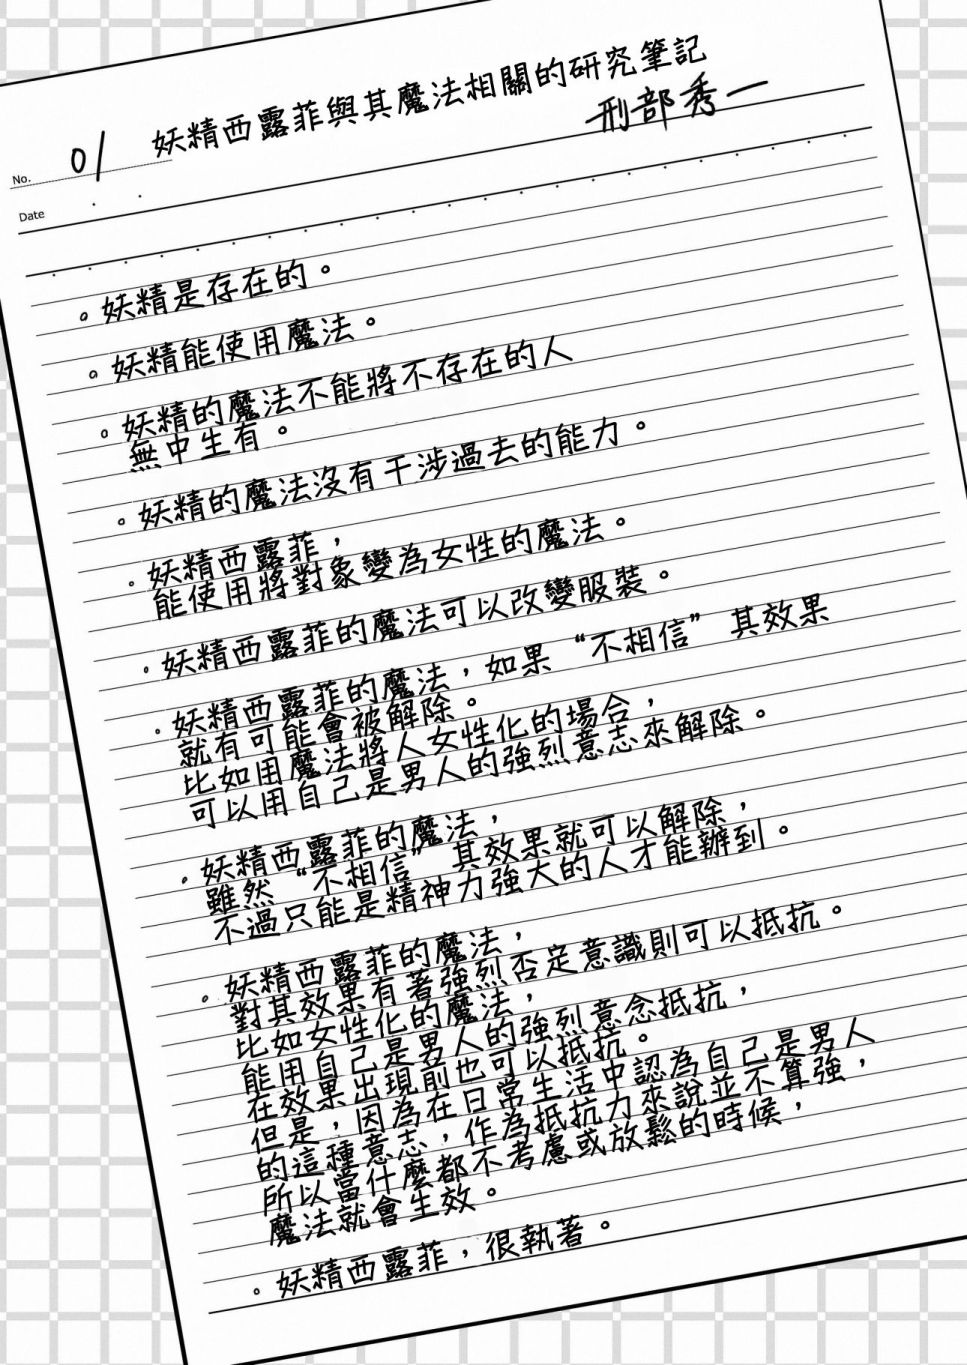 No. 01 妖精西露菲與其魔法相關的研究筆記
刑部秀一
Date
。妖精是存在的。
。妖精能使用魔法。
。妖精的魔法不能將不存在的人
無中生有。
。妖精的魔法沒有干涉過去的能力。
。妖精西露菲，
能使用將對象變為女性的魔法。
。妖精西露菲的魔法可以改變服裝。
。妖精西露菲的魔法，如果“不相信”其效果
就有可能會被解除。
比如用魔法將人女性化的場合，
可以用自己是男人的強烈意志來解除。
。妖精西露菲的魔法，
雖然“不相信”其效果就可以解除，
不過只能是精神力強大的人才能辦到。
。妖精西露菲的魔法，
對其效果有著強烈否定意識則可以抵抗。
比如女性化的魔法，
能用自己是男人的強烈意念抵抗，
在效果出現前也可以抵抗。
但是，因為在日常生活中認為自己是男人
的這種意志，作為抵抗力來說並不算強，
所以當什麼都不考慮或放鬆的時候，
魔法就會生效。
。妖精西露菲，很執著。